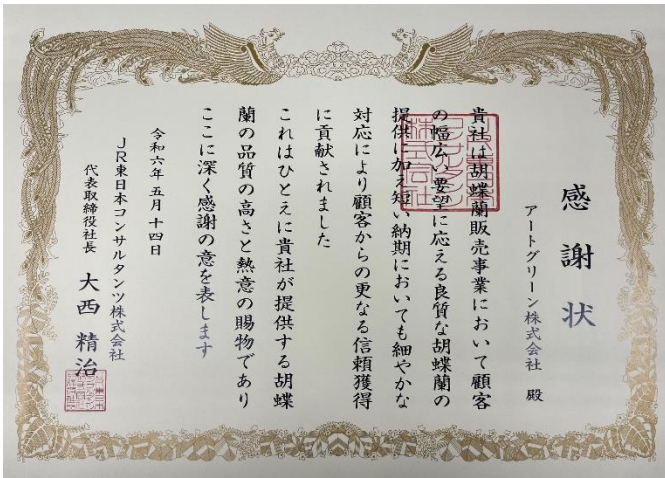 感謝状
アートグリーン株式会社 殿
貴社は胡蝶蘭販売事業において顧客
の幅広い要望に応える良質な胡蝶蘭の
提供に加え短い納期においても細やかな
対応により顧客からの更なる信頼獲得
に貢献されました
これはひとえに貴社が提供する胡蝶
蘭の品質の高さと熱意の賜物であり
ここに深く感謝の意を表します
令和六年五月十四日
JR東日本コンサルタンツ株式会社
代表取締役社長 大西精治